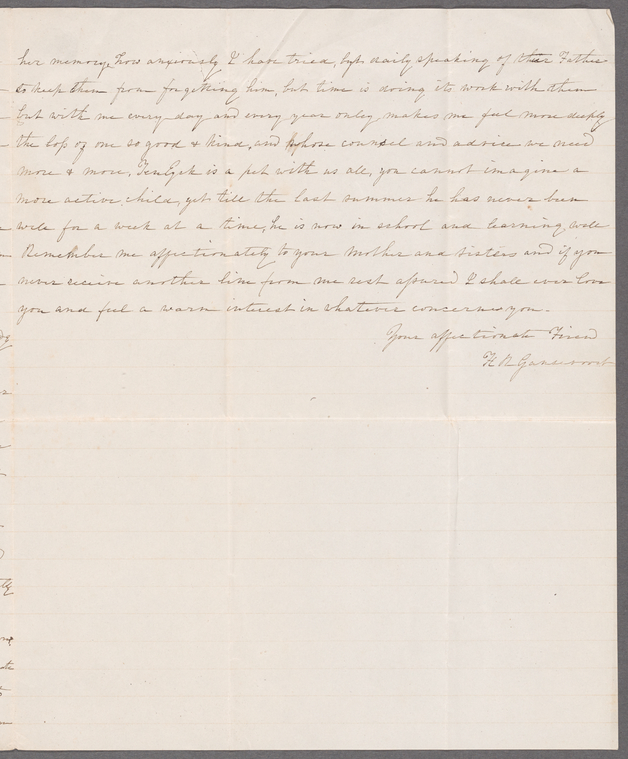 her memory, how anxiously I have tried, by daily speaking of their Father
to keep them from forgetting him, but time is doing its work with them
but with me every day and every year only makes me feel more deeply
the loss of one so good & kind, and whose counsel and advice we need
more & more, TenEyck is a pet with us all, you cannot imagine a
more active child, yet till the last summer he has never been
well for a week at a time, he is now in school and learning well
Remember me affectionately to your Mother and sisters and if you
never receive another line from me rest assured I shall ever love
you and feel a warm interest in whatever concerns you.
Your affectionate Friend
Gansevoort